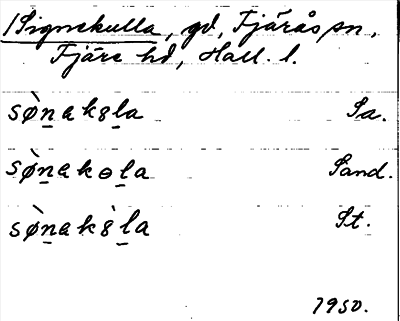 1 Signekulla, gd, Fjärås sn,
Fjäre hd, Hall. l.
sø̀n̠ak8l̠a Sa.
sø̀n̠akɵl̠a Sand.
sø̀n̠ak8̀l̠a St.
1950.